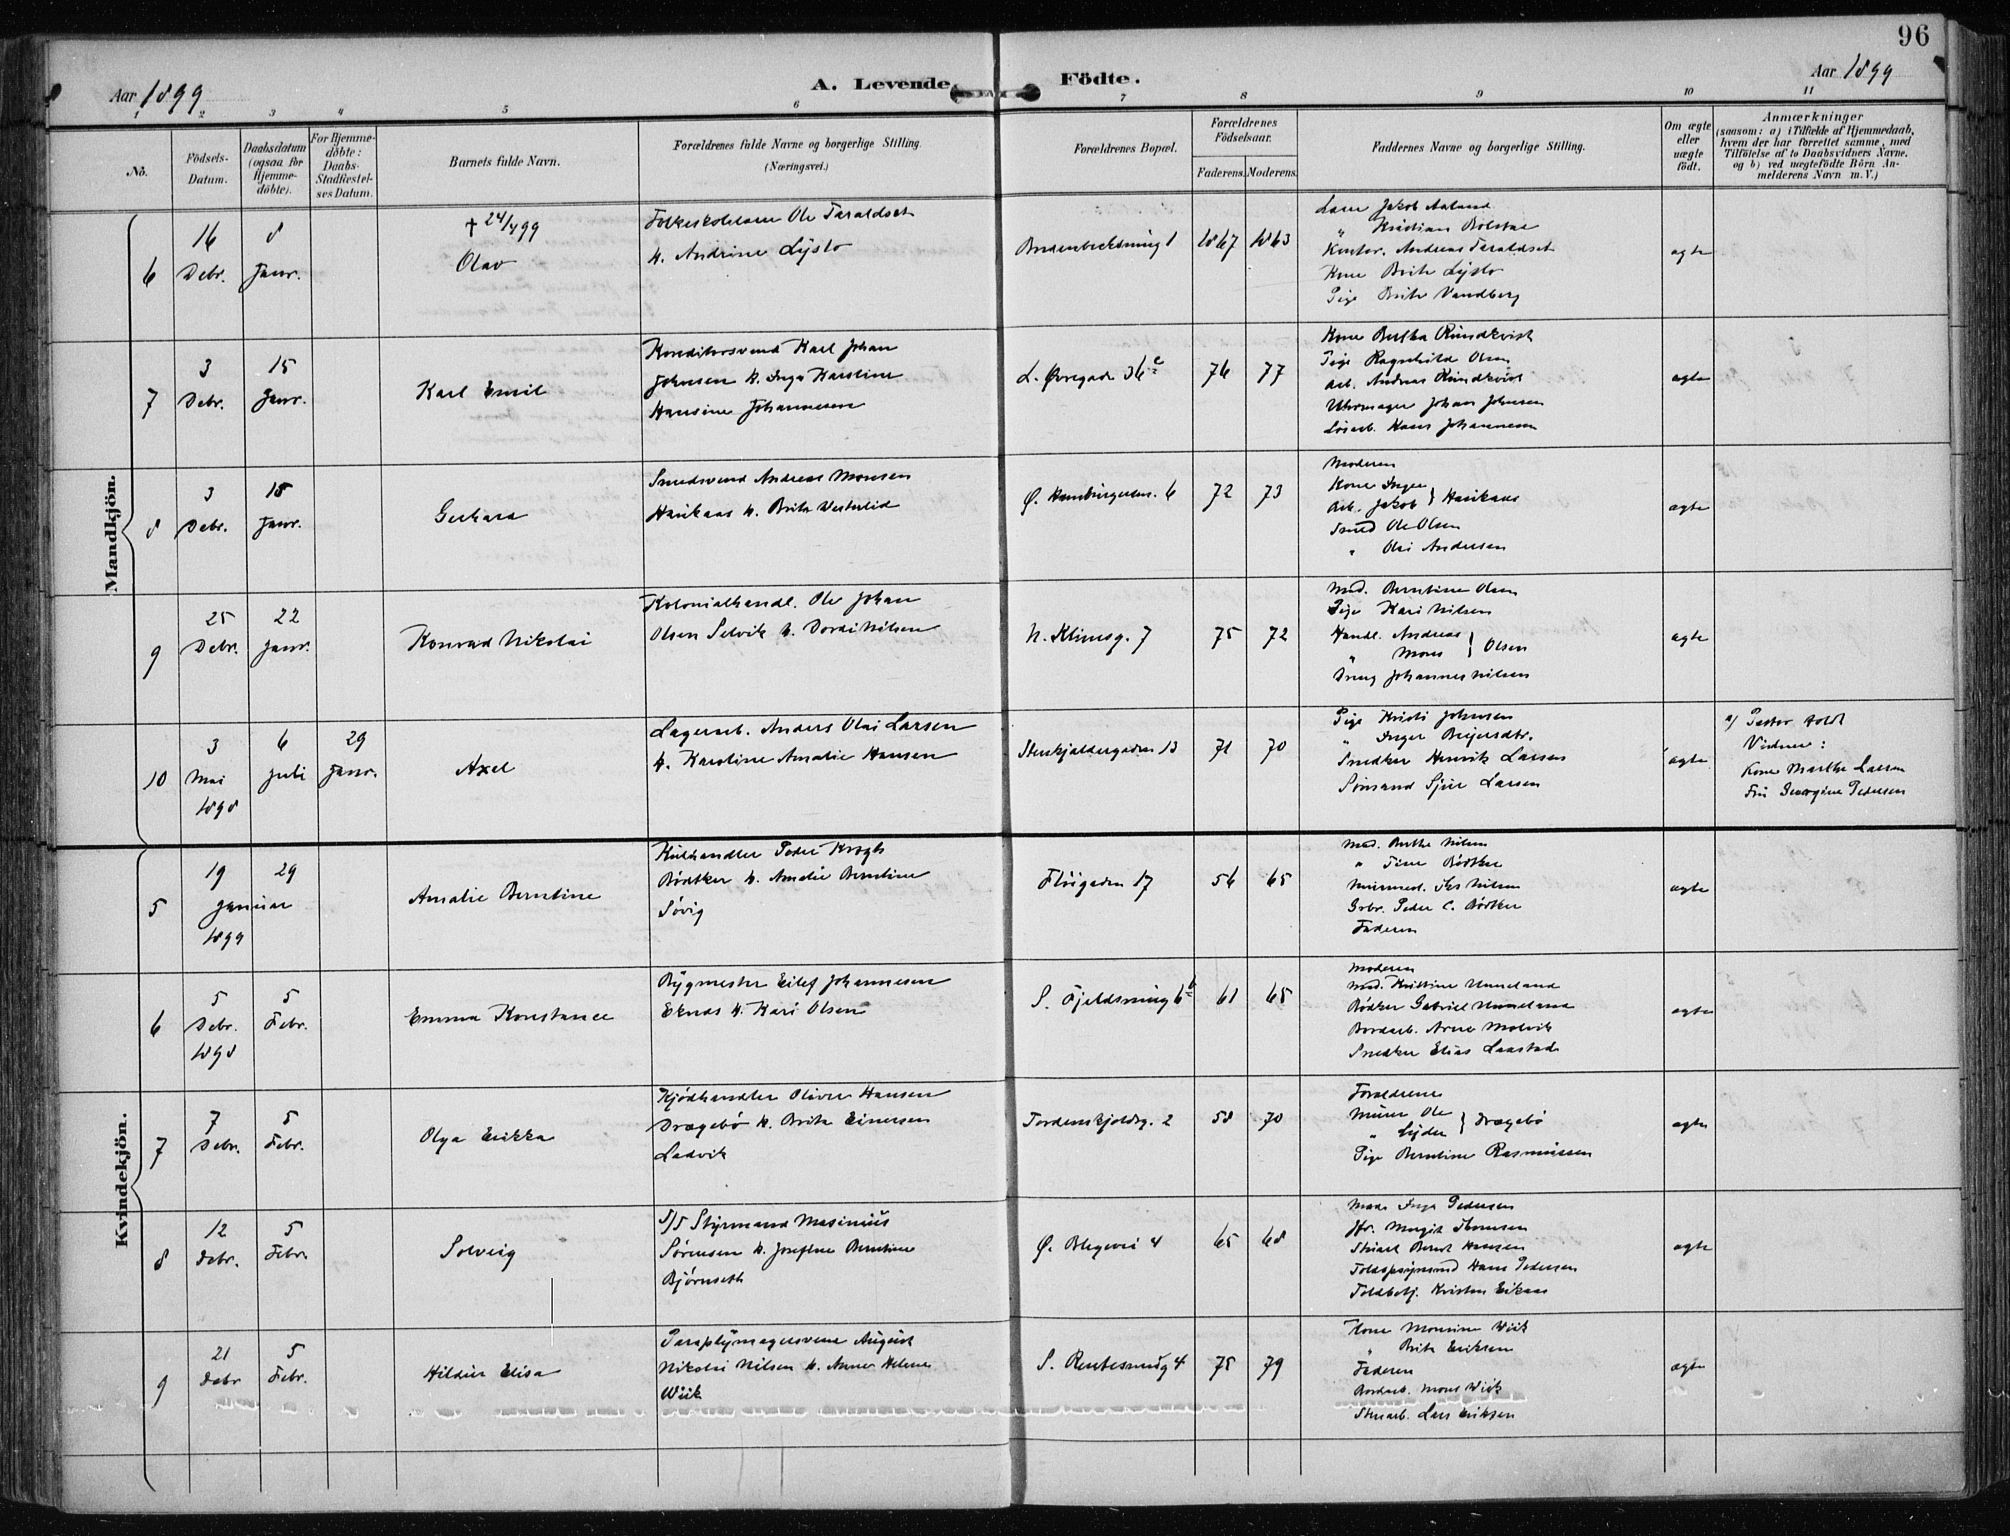 96
Aar 1899
A. Levende Födte.
Aar 1899
1 2 3 4 5 6 7 8 9 10 11
No.
Födsels-Datum.
Daabsdatum (ogsaa for Hjemme-döbte).
For Hjemme-döbte: Daabs-Stadfæstel-ses Datum.
Barnets fulde Navn.
Forældrenes fulde Navne og borgerlige Stilling.
(Næringsvei.)
Forældrenes Bopæl.
Forældrenes Födselsaar.
Faderens. Moderens.
Faddernes Navne og borgerlige Stilling.
Om ægte eller uægte födt.
Anmærkninger
(saasom: a) i Tilfælde af Hjemmedaab,
hvem der har forrettet samme, med
Tilföielse af to Daabsvidners Navne,
og b) ved uægtefödte Börn An-
melderens Navn m. V.)
Mandkjön.
6
16 Debr.
8 Janr.
+ 24/4 99
Olav
Folkeskolelærer Ole Taraldset
h. Andrine Lysto
1867 1863
Lærer Jakob Aaland
" Kristian Bolstad
Kontor. Andreas Taraldset
Kone Brite Lysto
Pige Brite Vandberg
ægte
7
3 Debr.
15 Janr.
Karl Emil
Konditorsvend Karl Johan
Johnsen h. Inga Karoline
Hansine Johannesen
L. Øvregade 36 c
76 77
Kone Rundkvist
Pige Ragnhild Olsen
Arb. Andreas Rundkvist
Uhrmager Johan Johnsen
Løsarb. Hans Johannesen
ægte
8
3 Debr.
15 Janr.
Gerhard
Smedsvend Andreas Monsen
Haukaas h. Brite Vesterlid
Ø. Hamburgersm. 6
72 73
Moderen
Kone Inger
Arb. Jakob } Haukaas
Smed Ole Olsen
" Olai Andersen
ægte
9
25 Debr.
22 Janr.
Konrad Nikolai
Kolonialhandl. Ole Johan
Olsen Selvik h. Dordi Nilsen
N. Klimsg. 7
75 72
Mad. Berntine Olsen
Pige Kari Nilsen
Handl. Andreas
" Mons } Olsen
Dreng Johannes Nilsen
ægte
10
3 Mai 1898
6 Juli
29 Janr.
Axel
Lagerarb. Anders Olai Larsen
h. Karoline Amalie Hansen
71 70
Pige Kristi Johnsen
" Inger
Snedker Henrik Larsen
Larsen
ægte
a) Pastor Holdt
Vidner:
Kone Marthe Larsen
Fru Georgine Pedersen
Kvindekjön.
5
19 29
Januar
1899
Amalie Berntine
Kulhandler Peder Krogh
Bödtker h. Amalie Berntine
Søvig
Fløigaden 17
56 65
Mad. Berthe Nilsen
" Bödtker
Nilsen
Grbr. Peder C. Bödtker
Faderen
ægte
6
5 Debr. 1898
5 Febr.
Emma Konstance
Bygmester Eilef Johannesen
Eknes h. Kari Olsen
S. Fjeldsmug 6 b
61 65
Moderen
Mad. Kristine Unneland
Bødker Gabriel Unneland
Bordarb. Arne Molvik
Snedker Elias Laastad
ægte
7
7 Debr.
5 Febr.
Olga Erikka
Kjødhandler Oliver Hansen
Drægebø h. Brite Einersen
Ladvik
Tordenskjoldsg. 2
58 70
Forældrene
Murer Ole
" } Drægebø
Pige Berntine Rasmussen
ægte
8
12 Debr.
5 Febr.
Solveig
S/S Styrmand Masinius
Sørensen h. Josefine Berntine
Bjørnseth
Ø. Blegevei 4
65 68
Inga Pedersen
Margit
Berent Hansen
Hans Pedersen
Toldbetj. Kristen
ægte
9
21 Debr
5 Febr.
Elisa
Paraplymagersvend August
Nikolai Nilsen h. Anne Helene
Wiik
75 79
Kone Monsine Wiik
" Brite Eriksen
Faderen
Bordarb. Mons Wiik
Lars Eriksen
ægte